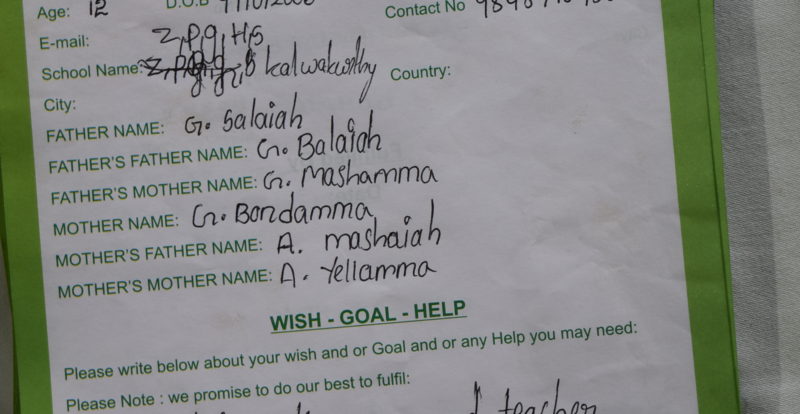 Age: 12 D.O.B Contact No
E-mail: Z,P,g,H,S
School Name: kalwakurthy Country:
City:
FATHER NAME: G. Salaiah
FATHER'S FATHER NAME: G. Balaiah
FATHER'S MOTHER NAME: G. Mashamma
MOTHER NAME: G. Bondamma
MOTHER'S FATHER NAME: A. mashaiah
MOTHER'S MOTHER NAME: A. Yellamma
WISH - GOAL - HELP
Please write below about your wish and or Goal and or any Help you may need:
Please Note : we promise to do our best to fulfil:
teacher